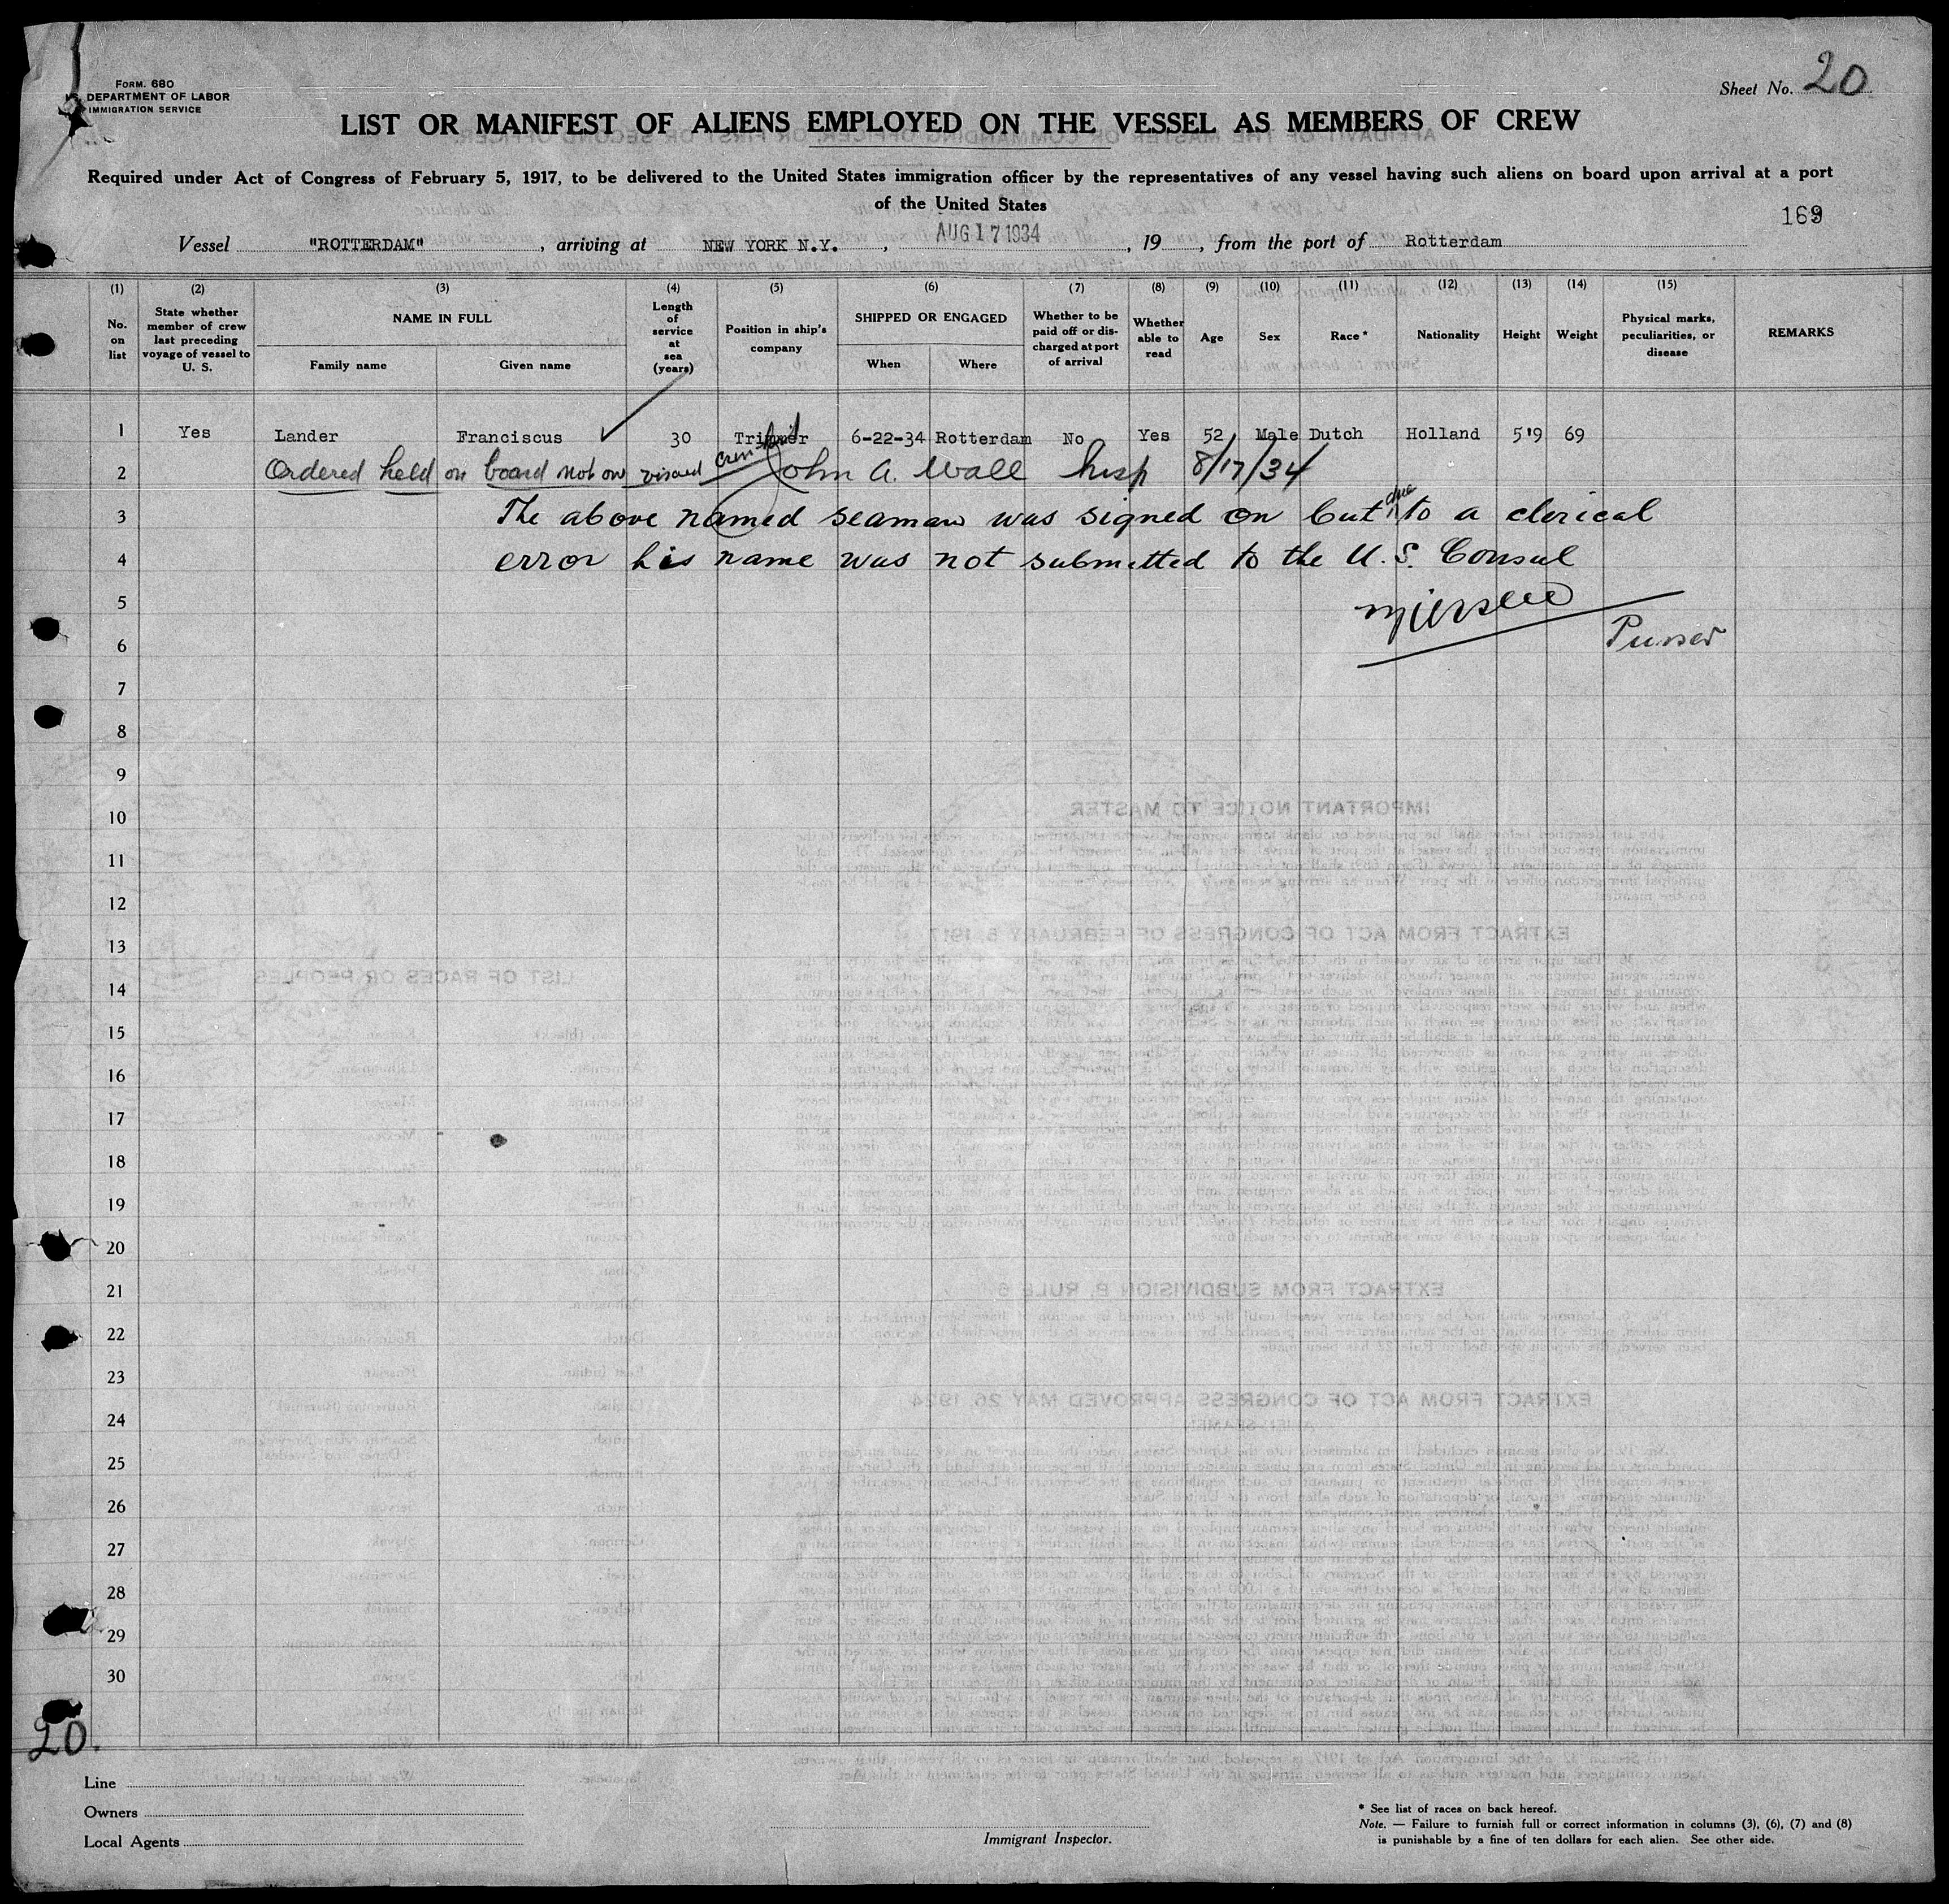 Form. 680
DEPARTMENT OF LABOR
IMMIGRATION SERVICE
Sheet No. 20
LIST OR MANIFEST OF ALIENS EMPLOYED ON THE VESSEL AS MEMBERS OF CREW
Required under Act of Congress of February 5, 1917, to be delivered to the United States immigration officer by the representatives of any vessel having such aliens on board upon arrival at a port
of the United States
169
Vessel "ROTTERDAM", arriving at NEW YORK N.Y., AUG 17 1934, 19, from the port of Rotterdam
(1) (2) (3) (4) (5) (6) (7) (8) (9) (10) (11) (12) (13) (14) (15)
No. on list
State whether member of crew last preceding voyage of vessel to U. S.
NAME IN FULL
Family name
Given name
Length of service at sea (years)
Position in ship's company
SHIPPED OR ENGAGED
When
Where
Whether to be paid off or discharged at port of arrival
Whether able to read
Age
Sex
Race*
Nationality
Height
Weight
Physical marks, peculiarities, or disease
REMARKS
1 Yes Lander Franciscus 30 Trimmer 6-22-34 Rotterdam No Yes 52 Male Dutch Holland 5'9 69
2 Ordered held on board not on visaed crew list John A. Wall Insp 8/17/34
3 The above named seaman was signed on but due to a clerical
4 error his name was not submitted to the U.S. Consul
5
6 Purser
7
8
9
10
11
12
13
14
15
16
17
18
19
20
21
22
23
24
25
26
27
28
29
30
20.
Line
Owners
Local Agents
Immigrant Inspector.
* See list of races on back hereof.
Note. — Failure to furnish full or correct information in columns (3), (6), (7) and (8)
is punishable by a fine of ten dollars for each alien. See other side.